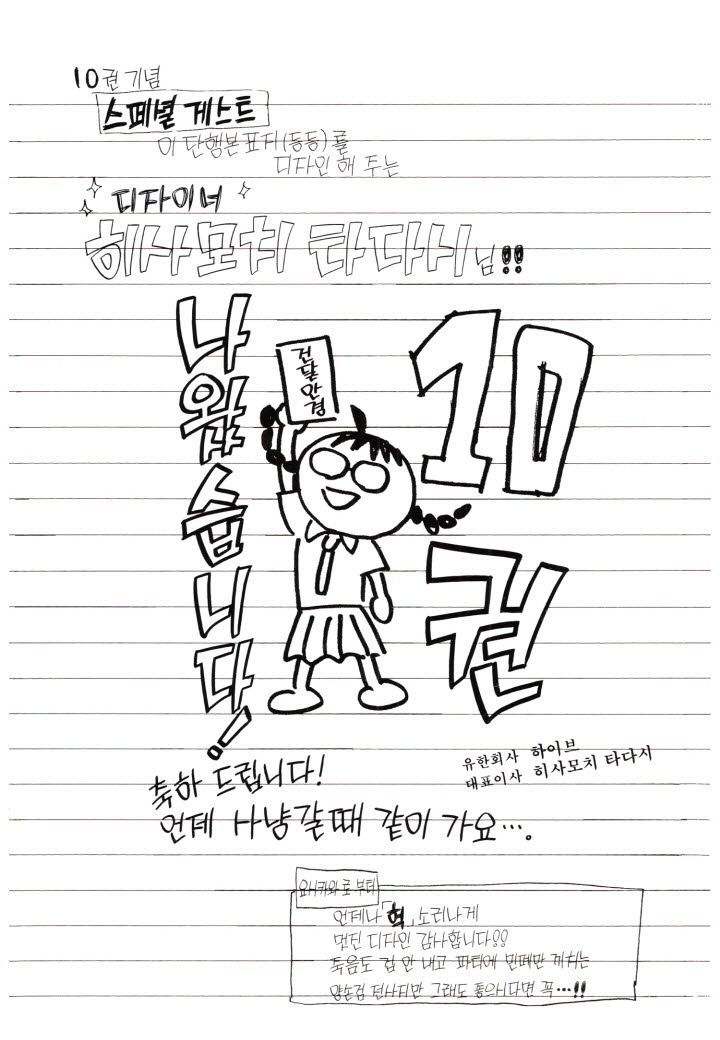 10권 기념
스페셜 게스트
이 단행본 표지(등등)를
디자인 해 주는
디자이너
히사모치 타다시님!!
10권
나왔습니다!
건달안경
유한회사 하이브
대표이사 히사모치 타다시
축하 드립니다!
언제 사냥갈때 같이 가요….
요시카와로 부터
언제나 「헉」 소리나게
멋진 디자인 감사합니다!!
죽음도 겁 안 내고 파티에 민폐만 끼치는
양손검 전사지만 그래도 좋으시다면 꼭…!!